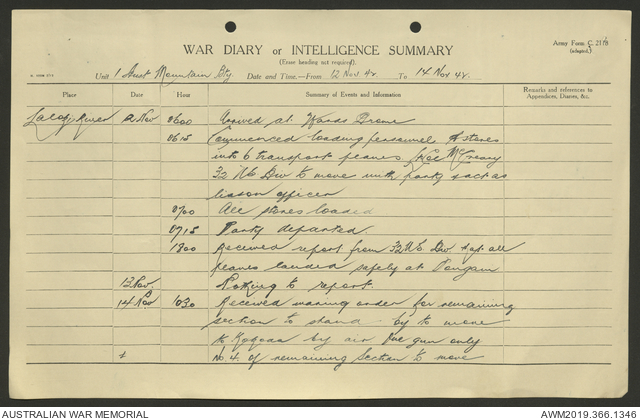 Army Form C. 2118
(adapted.)
WAR DIARY or INTELLIGENCE SUMMARY
(Erase heading not required).
Unit 1 Aust Mountain Bty. Date and Time—From 12 Nov 42 To 14 Nov 42.
Place Date Hour Summary of Events and Information Remarks and references to Appendices, Diaries, &c.
Laloki River 12 Nov 0600 Arrived at Wards Drome
0615 Commenced loading personnel & stores
into 6 transport planes McCreary
32 US Div to move with party & act as
liason officer
0700 All stores loaded
0715 Party departed.
1800 Received report from 32 U.S. Div that all
planes landed safely at Pongani
13 Nov. Nothing to report.
14 Nov 1030 Received warning order for remaining
section to stand-by to move
to Kokoda by air One gun only
No. 4 of remaining Section to move
AUSTRALIAN WAR MEMORIAL
AWM2019.366.1346